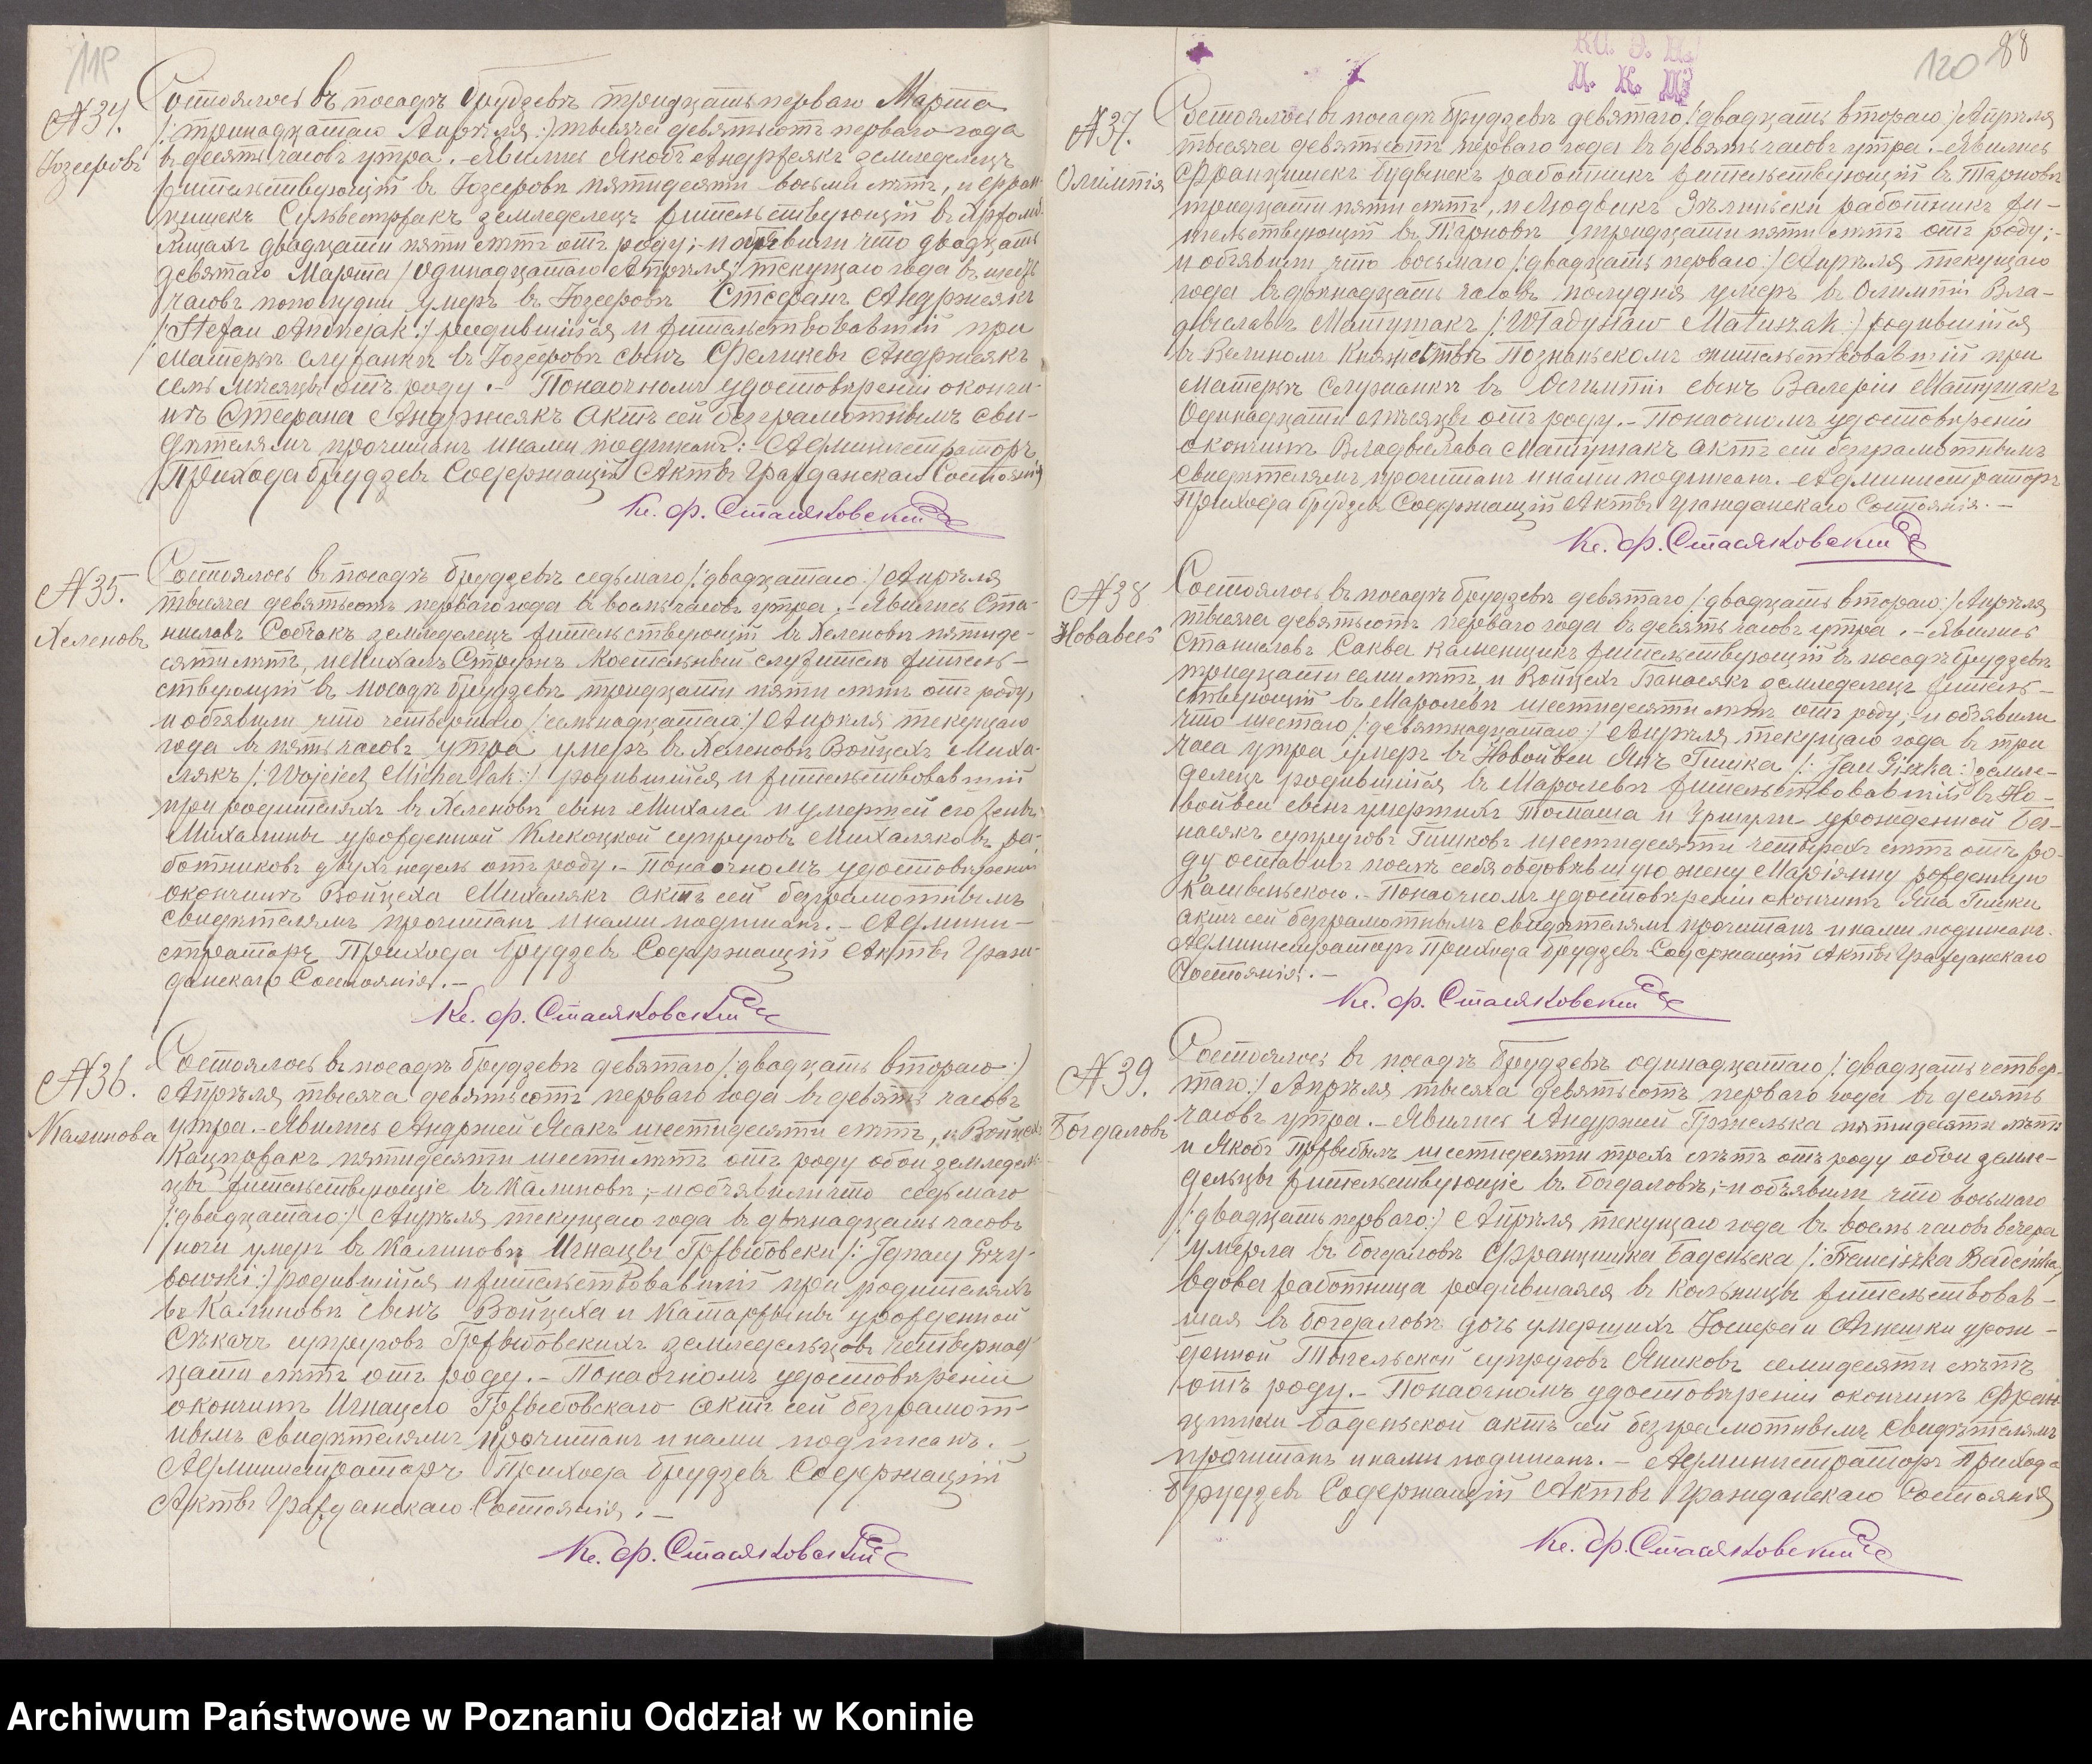 119
№34.
Юзефовъ
Состоялось въ посадѣ Брудзевѣ тридцать перваго Марта
/:тринадцатаго Апрѣля:/ тысяча девятьсотъ перваго года
въ десять часовъ утра. – Явились Якобъ Андржеякъ земледелецъ
жительствующій въ Юзефовѣ пятидесяти восьми лѣтъ, и Фран-
цишекъ Сульвестржакъ земледелецъ жительствующій въ
двадцати пяти лѣтъ отъ роду; – и объявили что двадцать
девятаго Марта /одинадцатаго Апрѣля:/ текущаго года въ шесть
часовъ пополудни умеръ въ Юзефовѣ Стефанъ Андржеякъ
/:Stefan Andrzejak:/ родившійся и жительствовавшій при
матери служанкѣ въ Юзефовѣ сынъ Феликсы Андржеякъ
семь мѣсяцы отъ роду. – Понаочномъ удостовѣреніи окончи-
нѣ Стефана Андржеякъ Актъ сей безграмотнымъ сви-
дѣтелямъ прочитанъ и нами подписанъ: – Администраторъ
Прихода Брудзевъ Содержащій Акты Гражданскаго Состоянія
Кс. Ф. Стасяковскій
№35.
Хеленовъ
Состоялось въ посадѣ Брудзевѣ седьмаго /:двадцатаго:/ Апрѣля
тысяча девятьсотъ перваго года въ восемь часовъ утра. – Явились Ста-
ниславъ Собчакъ земледелецъ жительствующій въ Хеленовѣ пятиде-
сяти лѣтъ, и Михалъ костельный служитель житель-
ствующій въ посадѣ Брудзевѣ тридцати пяти лѣтъ отъ роду,
и объявили что четвертаго /:семнадцатаго:/ Апрѣля текущаго
года въ пять часовъ утра умеръ въ Хеленовѣ Войцехъ Миха-
лякъ /:Wojciech Michalak:/ родившійся и жительствовавшій
при родителяхъ въ Хеленовѣ сынъ Михала и умершей его жены
Михалины урожденной Клекоцкой супруговъ Михаляковъ ра-
ботниковъ двухъ недель отъ роду. – Понаочномъ удостовѣреніи
окончинѣ Войцеха Михалякъ Актъ сей безграмотнымъ
свидѣтелямъ прочитанъ и нами подписанъ. – Админи-
страторъ Прихода Брудзевъ Содержащій Акты Граж-
данскаго Состоянія. –
Кс. Ф. Стасяковскій
№36.
Калинова
Состоялось въ посадѣ Брудзевѣ девятаго /:двадцать втораго:/
Апрѣля тысяча девятьсотъ перваго года въ девять часовъ
утра. – Явились Андржей Ясакъ шестидесяти лѣтъ, и Войцехъ
Кацпржакъ пятидесяти шести лѣтъ отъ роду обои земледель-
цы жительствующіе въ Калиновѣ; – и объявили что седьмаго
/:двадцатаго:/ Апрѣля текущаго года въ двѣнадцать часовъ
ночи умеръ въ Калиновѣ Игнацы Гржыбовски /:Ignacy Grzy-
bowski:/ родившійся и жительствовавшій при родителяхъ
въ Калиновѣ сынъ Войцеха и Катаржыны урожденной
Сѣкачъ супруговъ Гржыбовскихъ земледельцовъ четырнад-
цати лѣтъ отъ роду. – Понаочномъ удостовѣреніи
окончинѣ Игнацего Гржыбовскаго Актъ сей безграмот-
нымъ свидѣтелямъ прочитанъ и нами подписанъ. –
Администраторъ Прихода Брудзевъ Содержащій
Акты Гражданскаго Состоянія. –
Кс. Ф. Стасяковскій
120 88
К. К. Ц.
№37.
Олимпія
Состоялось въ посадѣ Брудзевѣ девятаго /:двадцать втораго:/ Апрѣля
тысяча девятьсотъ перваго года въ девять часовъ утра. – Явились
Францишекъ Будынекъ работникъ жительствующій въ Тарновѣ
тридцати пяти лѣтъ, и Людвикъ Зѣлиньски работникъ жи-
тельствующій въ Тарновѣ тридцати пяти лѣтъ отъ роду; –
и объявили что восьмаго /:двадцать перваго:/ Апрѣля текущаго
года въ двѣнадцать часовъ полудня умеръ въ Олимпіи Вла-
дыславъ Матушакъ /:Władysław Matuszak:/ родившійся
въ Великомъ Княжествѣ Познаньскомъ жительствовавшій при
матери служанкѣ въ Олимпіи сынъ Валеріи Матушакъ
одинадцати мѣсяцы отъ роду. – Понаочномъ удостовѣреніи
окончинѣ Владыслава Матушакъ Актъ сей безграмотнымъ
свидѣтелямъ прочитанъ и нами подписанъ. – Администраторъ
Прихода Брудзевъ Содержащій Акты Гражданскаго Состоянія. –
Кс. Ф. Стасяковскій
№38
Нововесь
Состоялось въ посадѣ Брудзевѣ девятаго /:двадцать втораго:/ Апрѣля
тысяча девятьсотъ перваго года въ десять часовъ утра. – Явились
Станиславъ Саква каменщикъ жительствующій въ посадѣ Брудзевѣ
тридцати семи лѣтъ, и Войцехъ Банасякъ земледелецъ житель-
ствующій въ Маролевѣ шестидесяти лѣтъ отъ роду; – и объявили
что шестаго /:девятнадцатаго:/ Апрѣля текущаго года въ три
часа утра умеръ въ Новойвси Янъ Гишка /:Jan Giszka:/ земле-
делецъ родившійся въ Маролевѣ жительствовавшій въ Но-
войвси сынъ умершихъ Томаша и урожденной Ба-
насякъ супруговъ Гишковъ шестидесяти четырехъ лѣтъ отъ ро-
ду оставивъ послѣ себя овдовѣвшую жену Маріянну рожденную
. – Понаочномъ удостовѣреніи окончинѣ Яна Гишки
Актъ сей безграмотнымъ свидѣтелямъ прочитанъ и нами подписанъ.
Администраторъ Прихода Брудзевъ Содержащій Акты Гражданскаго
Состоянія. –
Кс. Ф. Стасяковскій
№39.
Богдаловъ
Состоялось въ посадѣ Брудзевѣ одинадцатаго /:двадцать четвер-
таго:/ Апрѣля тысяча девятьсотъ перваго года въ десять
часовъ утра. – Явились Андржей Гржелька пятидесяти лѣтъ
и Якобъ Пржыбылъ шестидесяти трехъ лѣтъ отъ роду обои земле-
дельцы жительствующіе въ Богдаловѣ; – и объявили что восьмаго
/:двадцать перваго:/ Апрѣля текущаго года въ восемь часовъ вечера
умерла въ Богдаловѣ Францишка Баденьска /:Franciszka Badeńska
вдова работница родившаяся въ Кольницы жительствовав-
шая въ Богдаловѣ дочь умершихъ Юзефа и Агнешки урож-
денной супруговъ Яниковъ семидесяти лѣтъ
отъ роду. – Понаочномъ удостовѣреніи окончинѣ Фран-
цишки Баденьской актъ сей безграмотнымъ свидѣтелямъ
прочитанъ и нами подписанъ. – Администраторъ Прихода
Брудзевъ Содержащій Акты Гражданскаго Состоянія
Кс. Ф. Стасяковскій
Archiwum Państwowe w Poznaniu Oddział w Koninie